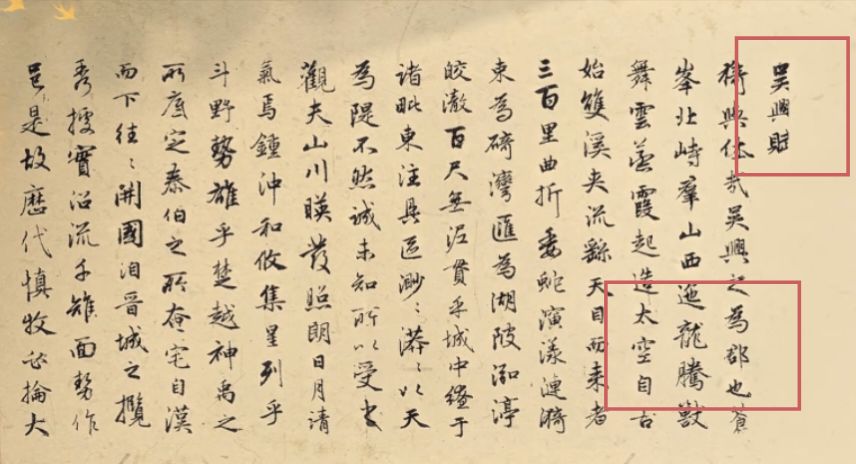 吳興賦
猗與休哉吳興之為郡也蒼
峯北峙羣山西迤龍騰獸
舞雲蒸霞起造太空自古
始雙溪夾流繇天目而来者
三百里曲折委蛇演漾漣漪
束為碕灣匯為湖陂泓渟
皎澈百尺無泥貫乎城中繚于
諸毗東注具區渺〻漭〻以天
為隄不然誠未知所以受之
觀夫山川暎發照朗日月清
氣焉鍾沖和攸集星列乎
斗野勢雄乎楚越神禹之
所底定泰伯之所奄宅自漢
而下往〻開國洎晋城之攬
秀據實沿流千雉面勢作
邑是故歷代慎牧必掄大